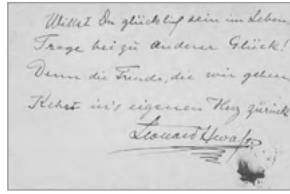 Willst Du glücklich sein im Leben,
Trage bei zu anderer Glück!
Denn die Freude, die wir geben
Kehrt in's eigenen Herz zurück
Leonard